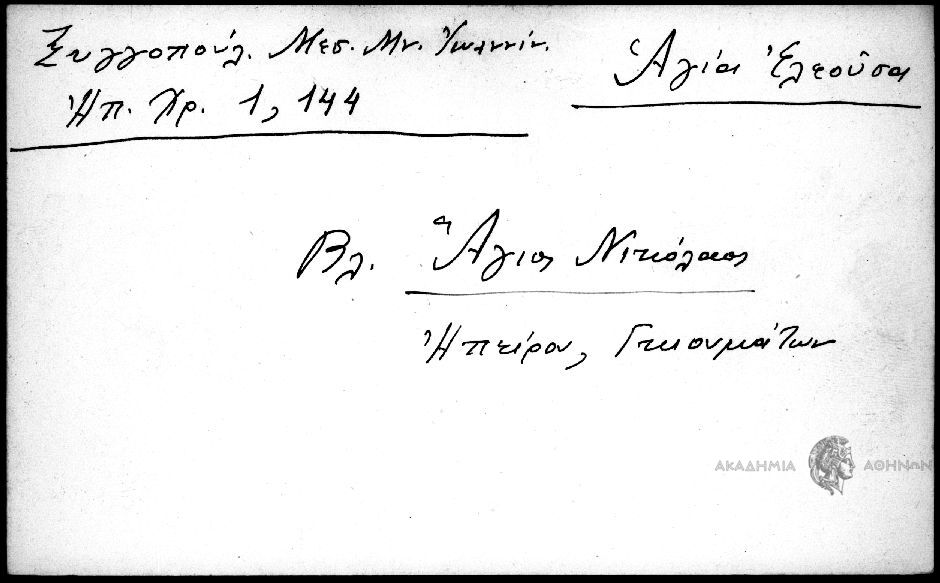 Ξυγγοπούλ. Μεσ. Μν. Ἰωαννίν.
Ἠπ. Χρ. 1, 144
Ἁγία Ἐλεοῦσα
Βλ. Ἅγιος Νικόλαος
Ἠπείρου, Γκιουμάτων
ΑΚΑΔΗΜΙΑ ΑΘΗΝΩΝ